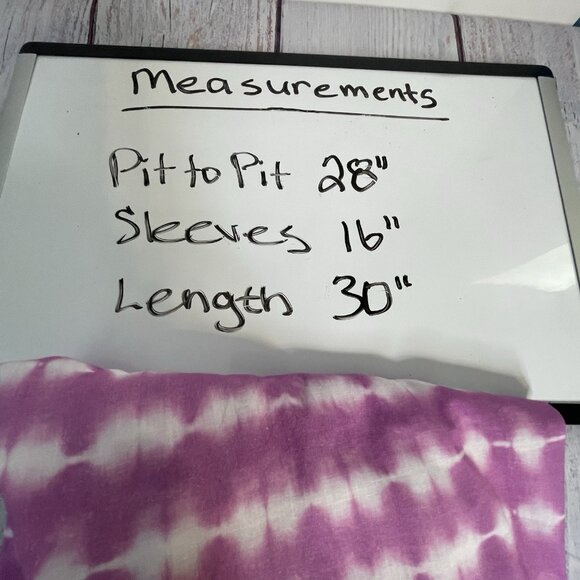 Measurements
Pit to Pit 28"
Sleeves 16"
Length 30"